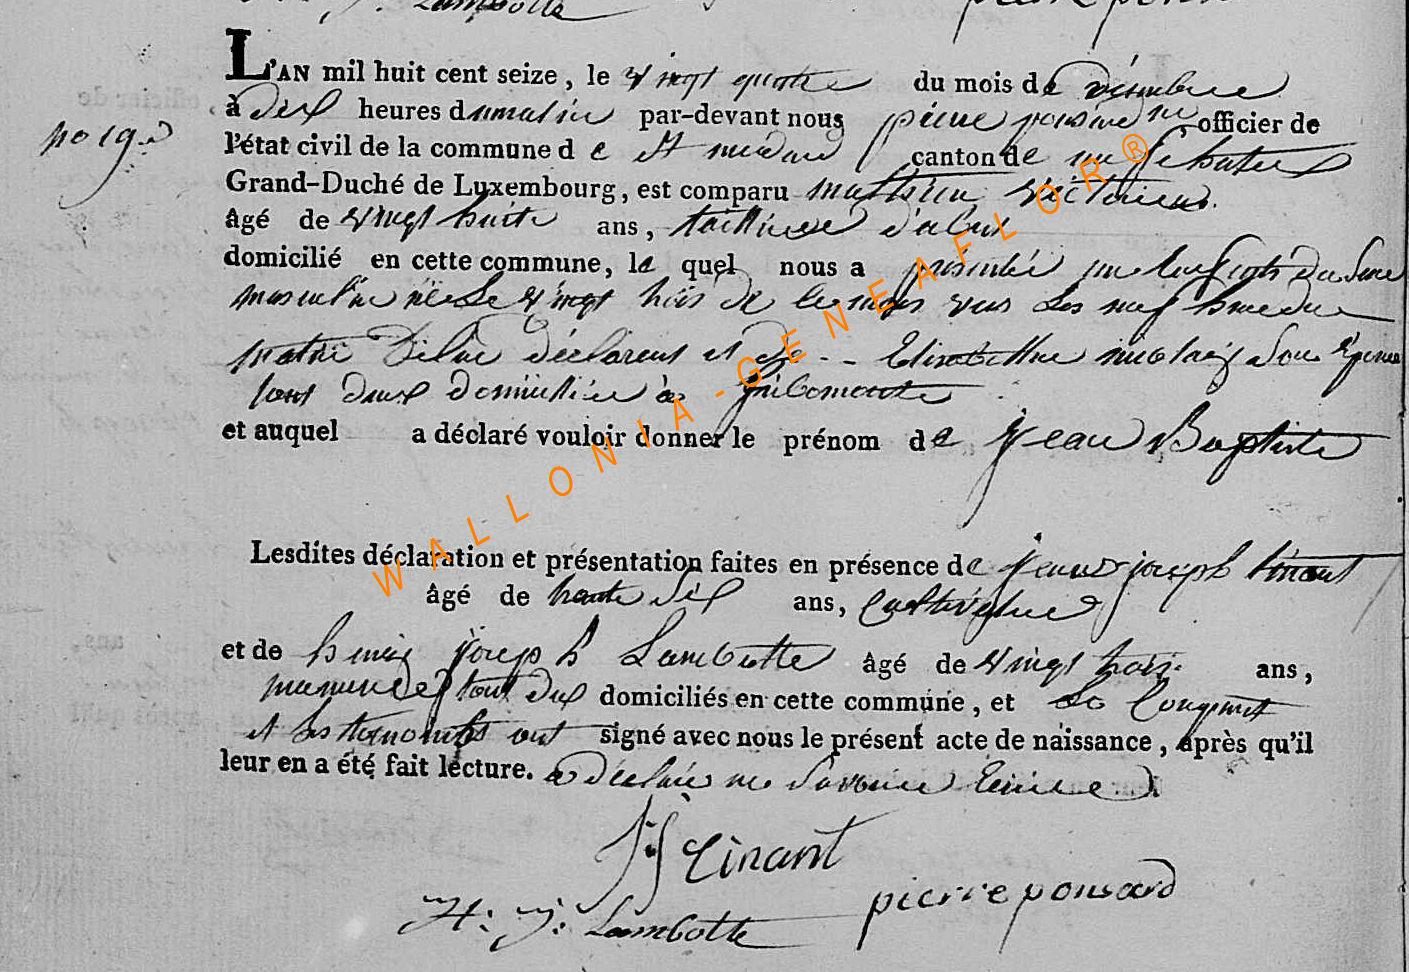 J. Lambotte
L'AN mil huit cent seize, le vingt quatre du mois de décembre
à dix heures du matin par-devant nous pierre ponsard officier de
no 19
l'état civil de la commune de St médard canton de neufchateau
Grand-Duché de Luxembourg, est comparu mathieu victoire
âgé de vingt huite ans, tailleur d'abit
domicilié en cette commune, le quel nous a présentée un enfant du sexe
masculin née le vingt trois de ce mois vers les neuf heure du
matin de lui déclarent et de -- Elisabethe nicolaÿ son Epouse
tous deux domiciliée à
et auquel a déclaré vouloir donner le prénom de jean Baptiste
Lesdites déclaration et présentation faites en présence de jean joseph tinant
âgé de trente six ans, cultivateur
et de henri joseph Lambotte âgé de vingt trois ans,
tout deux domiciliés en cette commune, et
et les temoints ont signé avec nous le présent acte de naissance, après qu'il
leur en a été fait lecture. a déclaré ne savoire Ecrire
JJ Tinant
H: J: Lambotte
pierre ponsard
WALLONIA-GENEAFLOR®